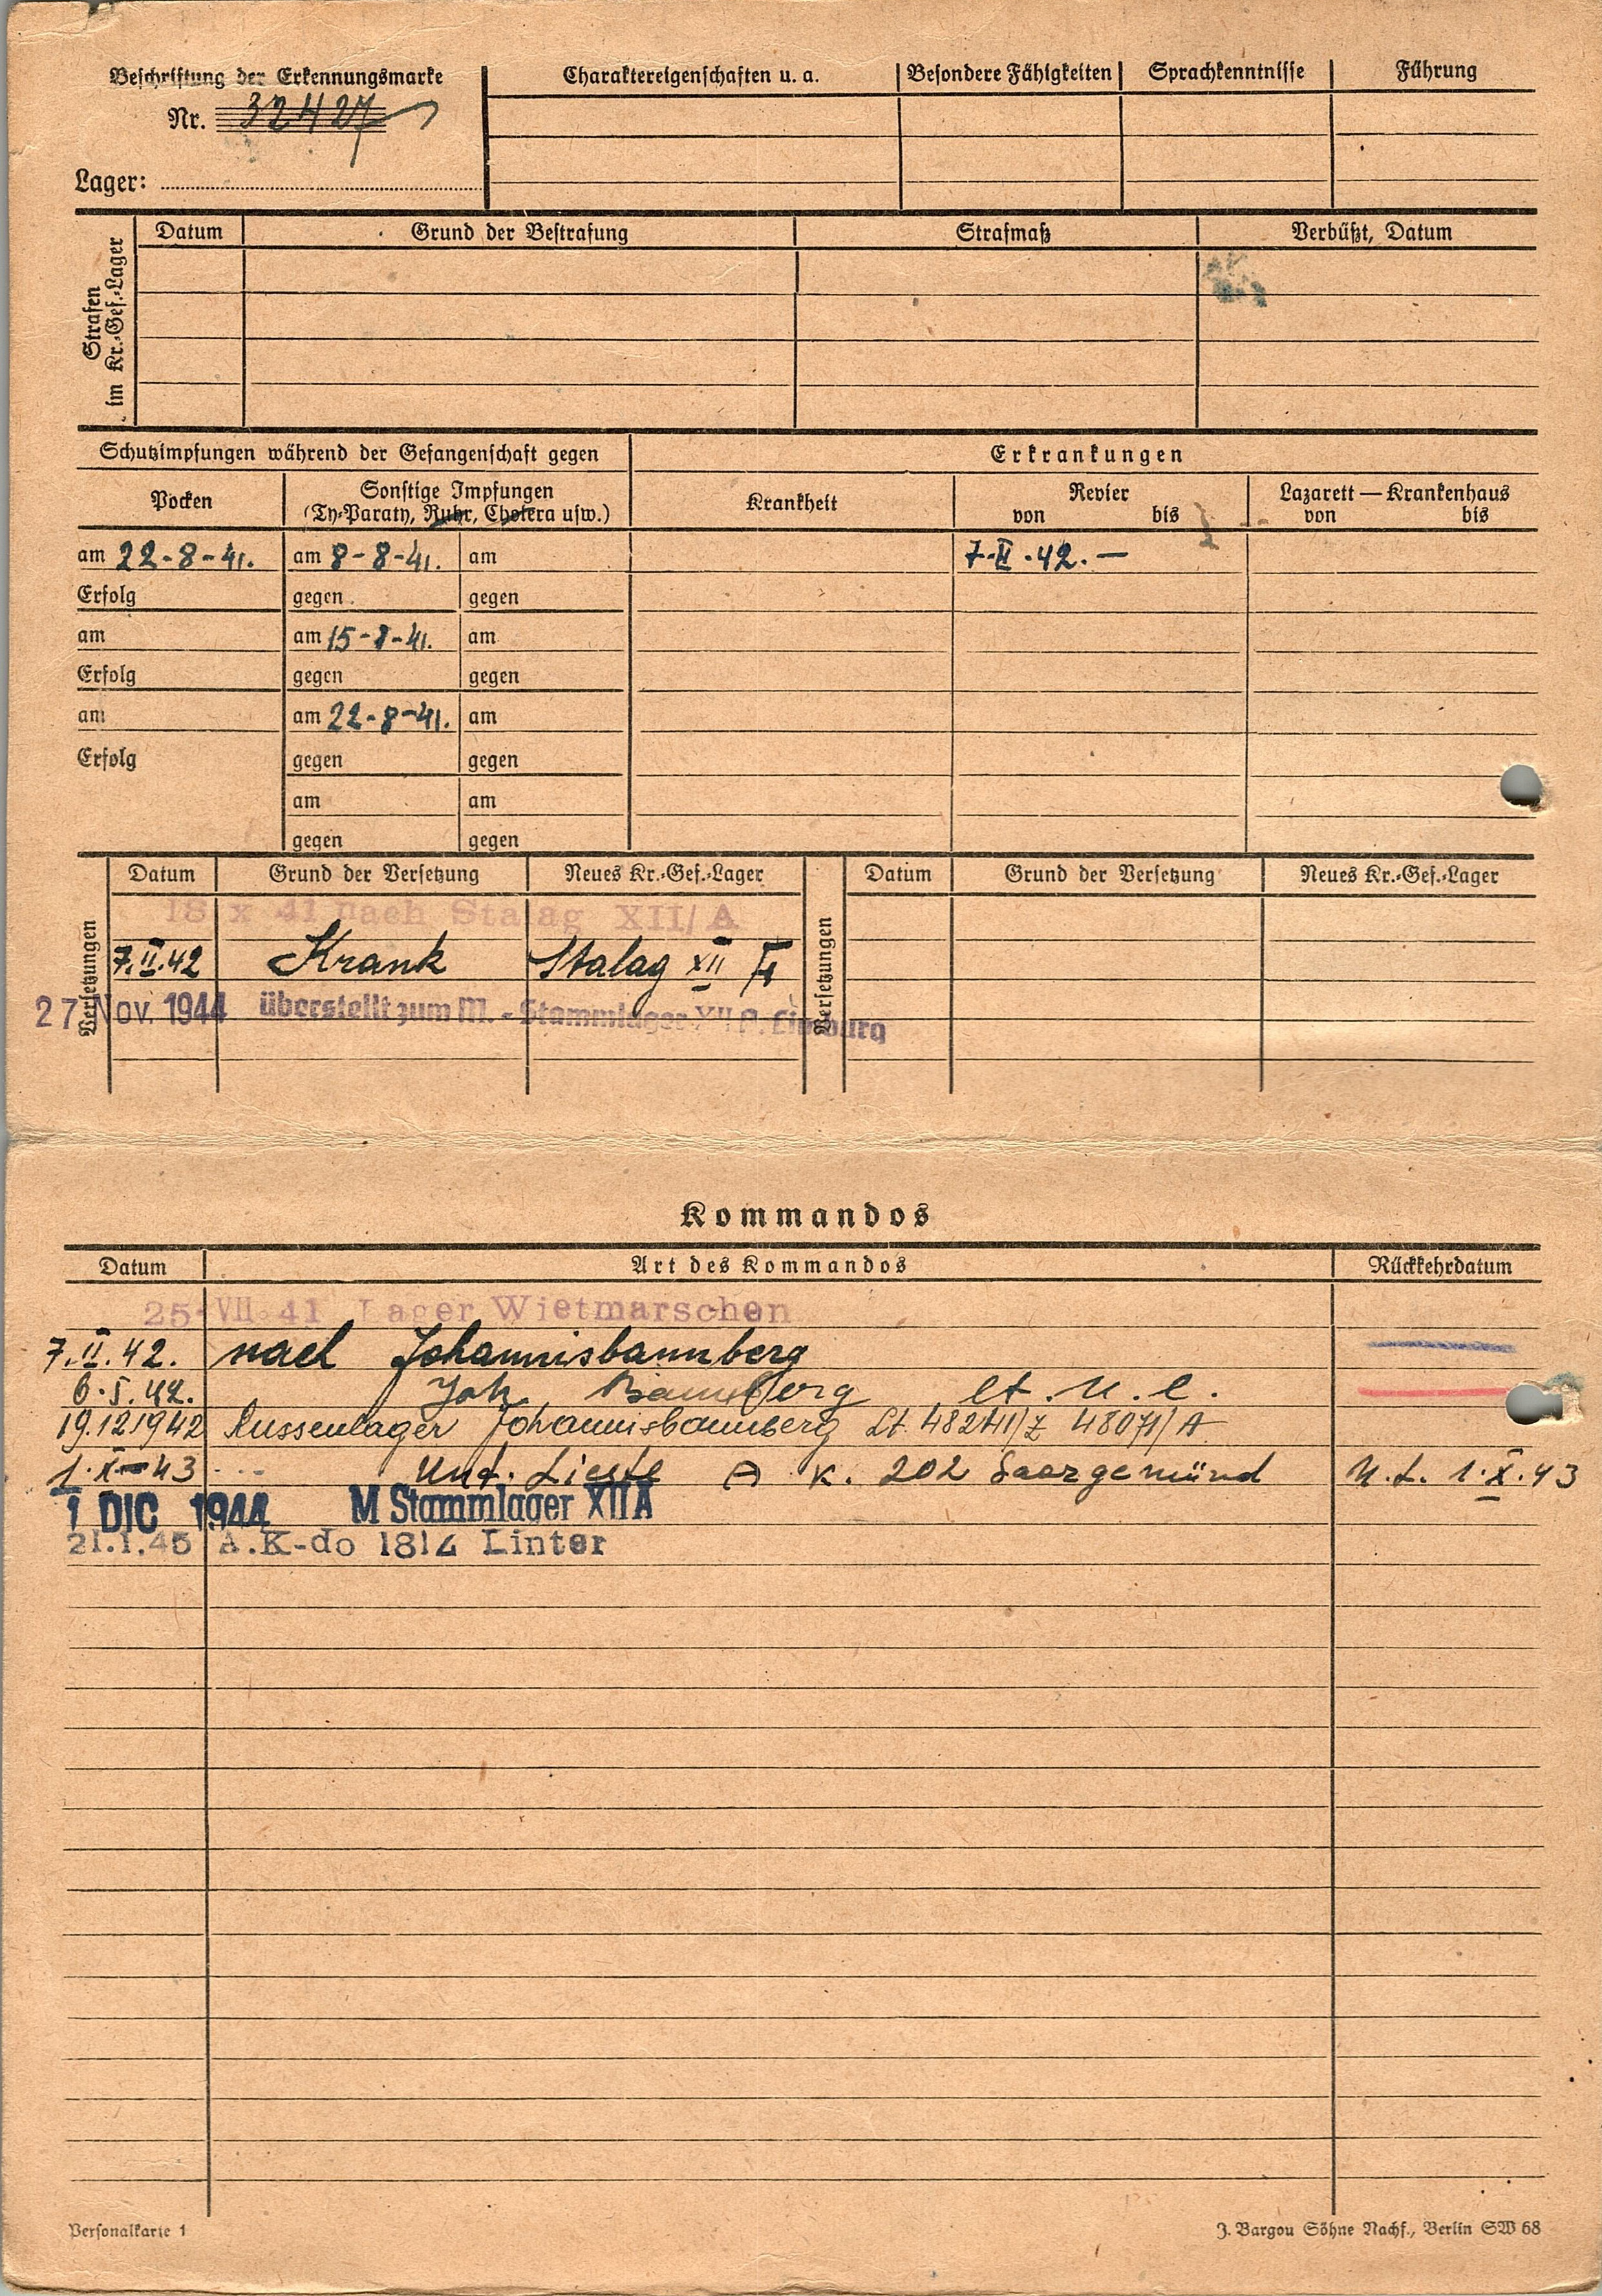 Beschriftung der Erkennungsmarke
Nr. 32427
Lager:
Charaktereigenschaften u. a. Besondere Fähigkeiten Sprachkenntnisse Führung
Strafen im Kr.-Gef.-Lager
Datum Grund der Bestrafung Strafmaß Verbüßt, Datum
Schutzimpfungen während der Gefangenschaft gegen
Erkrankungen
Pocken
Sonstige Impfungen
(Ty-Paraty, Ruhr, Cholera usw.)
Krankheit
Revier
von bis
Lazarett — Krankenhaus
von bis
am 22-8-41. am 8-8-41. am 7.II.42. —
Erfolg gegen gegen
am am 15-8-41. am
Erfolg gegen gegen
am am 22-8-41. am
Erfolg gegen gegen
am am
gegen gegen
Versetzungen
Datum Grund der Versetzung Neues Kr.-Gef.-Lager
Versetzungen
Datum Grund der Versetzung Neues Kr.-Gef.-Lager
18 x 41 nach Stalag XII/A
7.II.42 Krank Stalag XII F
27. Nov. 1944 überstellt zum M.-Stammlager XII A. Limburg
Kommandos
Datum Art des Kommandos Rückkehrdatum
25 VII 41 Lager Wietmarschen
7.II.42. nach Johannisbannberg
6.5.42. Joh Bannberg lt. U. l.
19.12.1942 Russenlager Johannisbannberg Lt. 48071/A
1.X-43 Unt. Lieste A K. 202 Saargemünd U.L. 1.X.43
1 DIC 1944 M Stammlager XII A
21.1.45 A.K-do 1814 Linter
Personalkarte 1
J. Bargou Söhne Nachf., Berlin SW 68